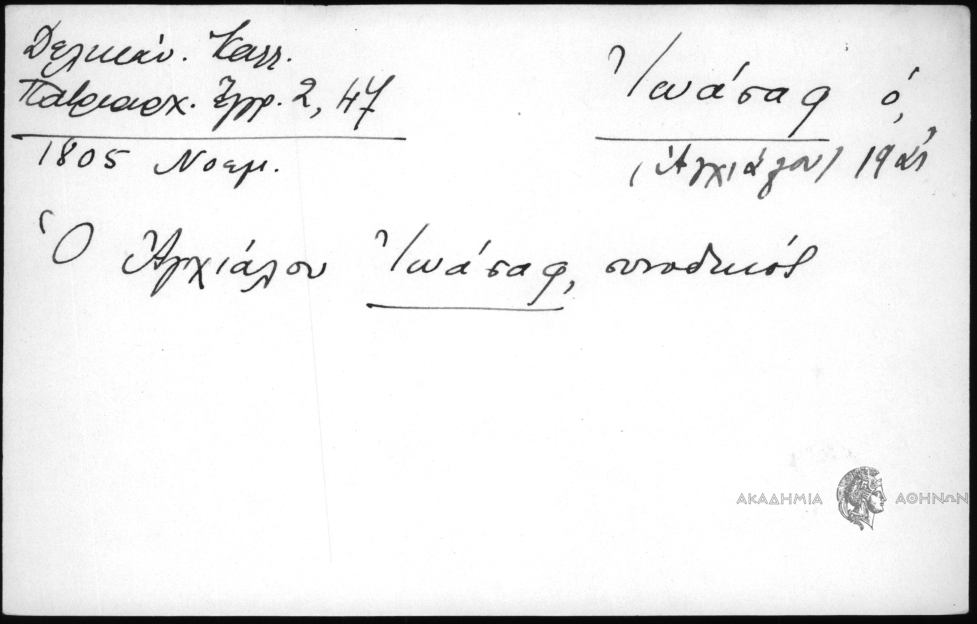 Δελικάν. Καλλ.
Πατριαρχ. Ἔγγρ. 2, 47
1805 Νοεμ.
Ἰωάσαφ ὁ,
(Ἀγχιάλου) 19ου
Ὁ Ἀγχιάλου Ἰωάσαφ, συνοδικός
ΑΚΑΔΗΜΙΑ ΑΘΗΝΩΝ